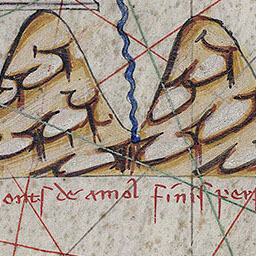 onts de amol finis pers